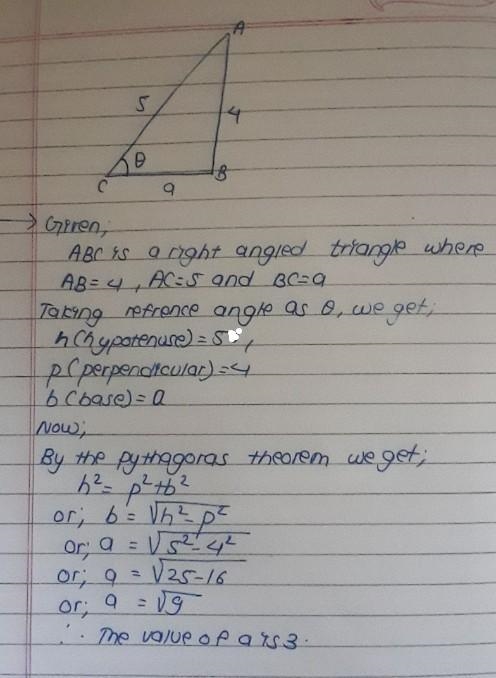 A
5
4
θ
C
B
a
→ Given,
ABC is a right angled triangle where
AB=4, AC=5 and BC=a
Taking refrence angle as θ, we get;
h(hypotenuse)=5,
p(perpendicular)=4
b(base)=a
Now;
By the pythagoras theorem we get;
h²= p²+b²
or; b = √h²-p²
or; a = √5²-4²
or; a = √25-16
or; a = √9
∴ The value of a is 3.